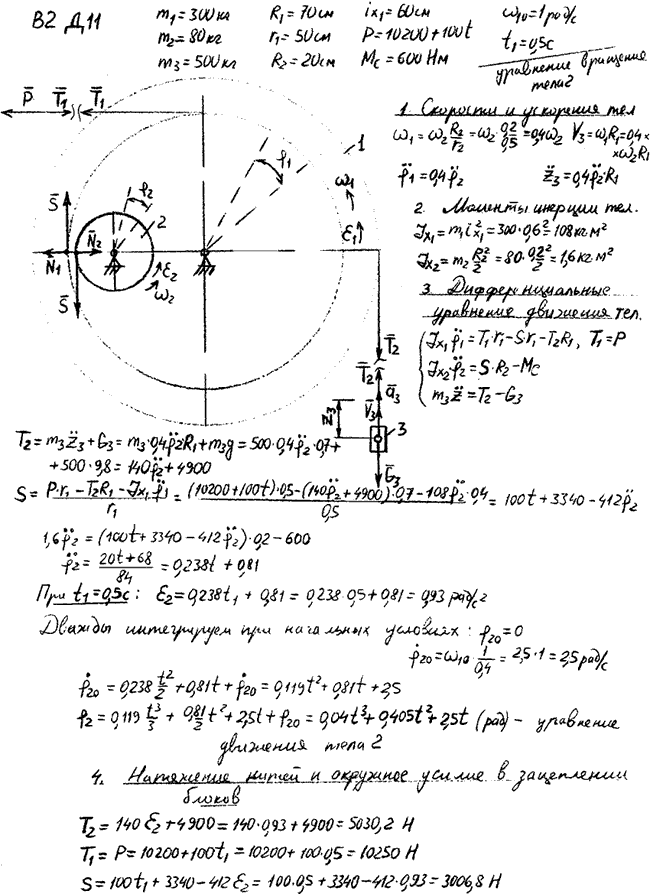 В2 Д11
m₁ = 300кг R₁ = 70см iх₁ = 60см ω₁₀ = 1рад/с
m₂ = 80кг r₁ = 50см P = 10200 + 100t t₁ = 0,5с
m₃ = 500кг R₂ = 20см Mс = 600Нм уравнение вращения тела 2
P̄ T̄₁ T̄₁
1
φ₁
φ₂
2
ω₁
ε₁
S̄
N̄₁ N̄₂
S̄
ε₂
ω₂
T̄₂
T̄₂
ā₃
V̄₃
z₃
3
Ḡ₃
1. Скорости и ускорения тел
ω₁ = ω₂ R₂/r₂ = ω₂ · 0,2/0,5 = 0,4ω₂ V₃ = ω₁R₁ = 0,4×
×ω₂R₁
φ̈₁ = 0,4φ̈₂ z̈₃ = 0,4φ̈₂·R₁
2. Моменты инерции тел.
Jх₁ = m₁i²х₁ = 300·0,6² = 108кг м²
Jх₂ = m₂ R₂²/2 = 80·0,2²/2 = 1,6кг м²
3. Дифференциальные
уравнение движения тел.
Jх₁φ̈₁ = T₁·r₁ − S·r₁ − T₂R₁, T₁ = P
Jх₂φ̈₂ = S·R₂ − Mс
m₃z̈ = T₂ − G₃
T₂ = m₃z̈₃ + G₃ = m₃·0,4φ̈₂R₁ + m₃g = 500·0,4φ̈₂·0,7 +
+ 500·9,8 = 140φ̈₂ + 4900
S = (P·r₁ − T₂R₁ − Jх₁φ̈₁)/r₁ = ((10200 + 100t)·0,5 − (140φ̈₂ + 4900)·0,7 − 108φ̈₂·0,4)/0,5 = 100t + 3340 − 412φ̈₂
1,6φ̈₂ = (100t + 3340 − 412φ̈₂)·0,2 − 600
φ̈₂ = (20t + 68)/84 = 0,238t + 0,81
При t₁ = 0,5с: ε₂ = 0,238t₁ + 0,81 = 0,238·0,5 + 0,81 = 0,93 рад/с²
Дважды интегрируем при начальных условиях: φ₂₀ = 0
φ̇₂₀ = ω₁₀ · 1/0,4 = 2,5·1 = 2,5 рад/с
φ̇₂₀ = 0,238 t²/2 + 0,81t + φ̇₂₀ = 0,119t² + 0,81t + 2,5
φ₂ = 0,119 t³/3 + 0,81/2 t² + 2,5t + φ₂₀ = 0,04t³ + 0,405t² + 2,5t (рад) – уравнение
движения тела 2
4. Натяжение нитей и окружное усилие в зацеплении
блоков
T₂ = 140 ε₂ + 4900 = 140·0,93 + 4900 = 5030,2 Н
T₁ = P = 10200 + 100t₁ = 10200 + 100·0,5 = 10250 Н
S = 100t₁ + 3340 − 412 ε₂ = 100·0,5 + 3340 − 412·0,93 = 3006,8 Н